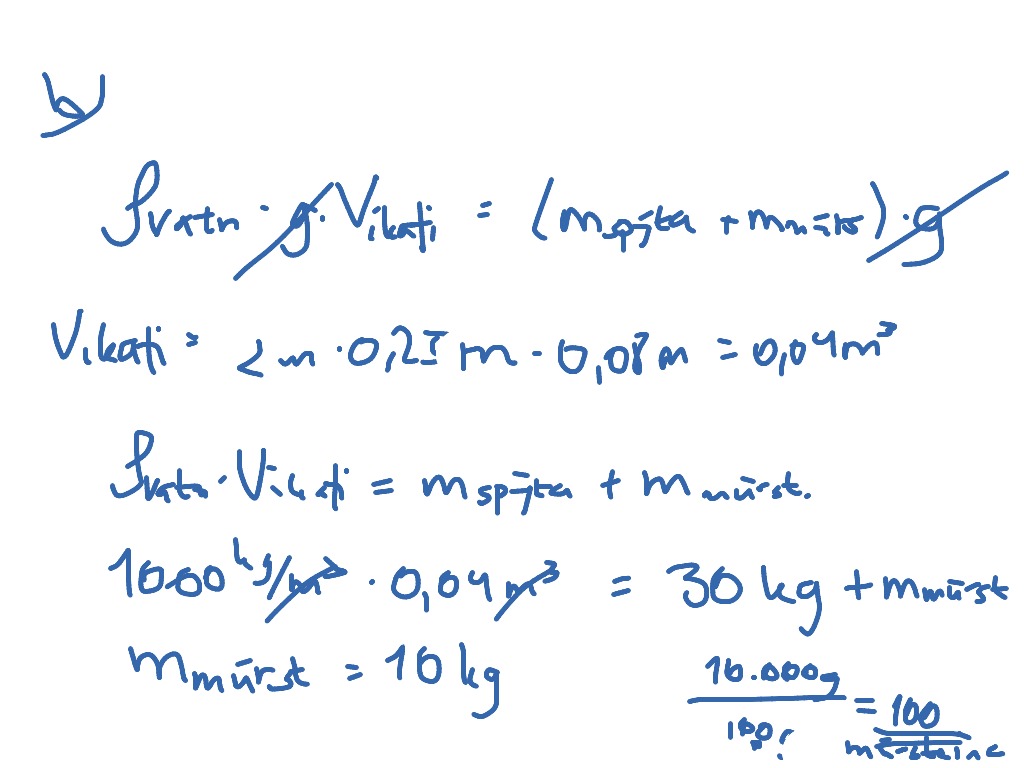 b)
ρvatn · g · Víkafi = (mspýta + mmúrst) · g
Víkafi = 2 m · 0,25 m · 0,08 m = 0,04 m³
ρvatn · Víkafi = mspýta + mmúrst.
1000 kg/m³ · 0,04 m³ = 30 kg + mmúrst
mmúrst = 10 kg
10.000g / 100g = 100
múrsteina